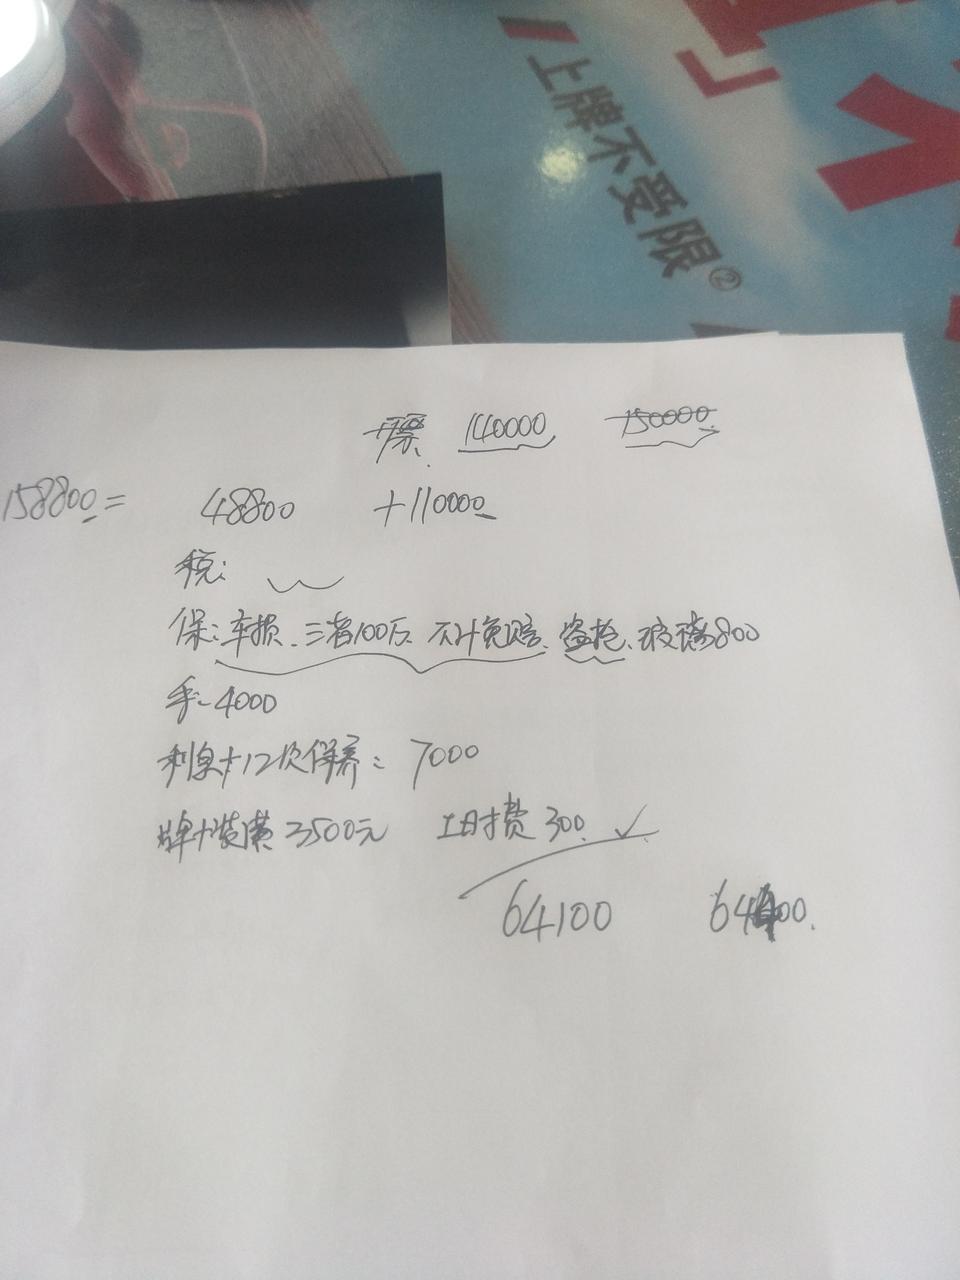 上牌不受限②
开票 140000 150000
158800= 48800 +110000
税:
保:车损、三者100万、不计免赔、盗抢、玻璃800
手:4000
利息+12次保养: 7000
牌+装潢 3500元 工时费 300 ✓
64100 64400.